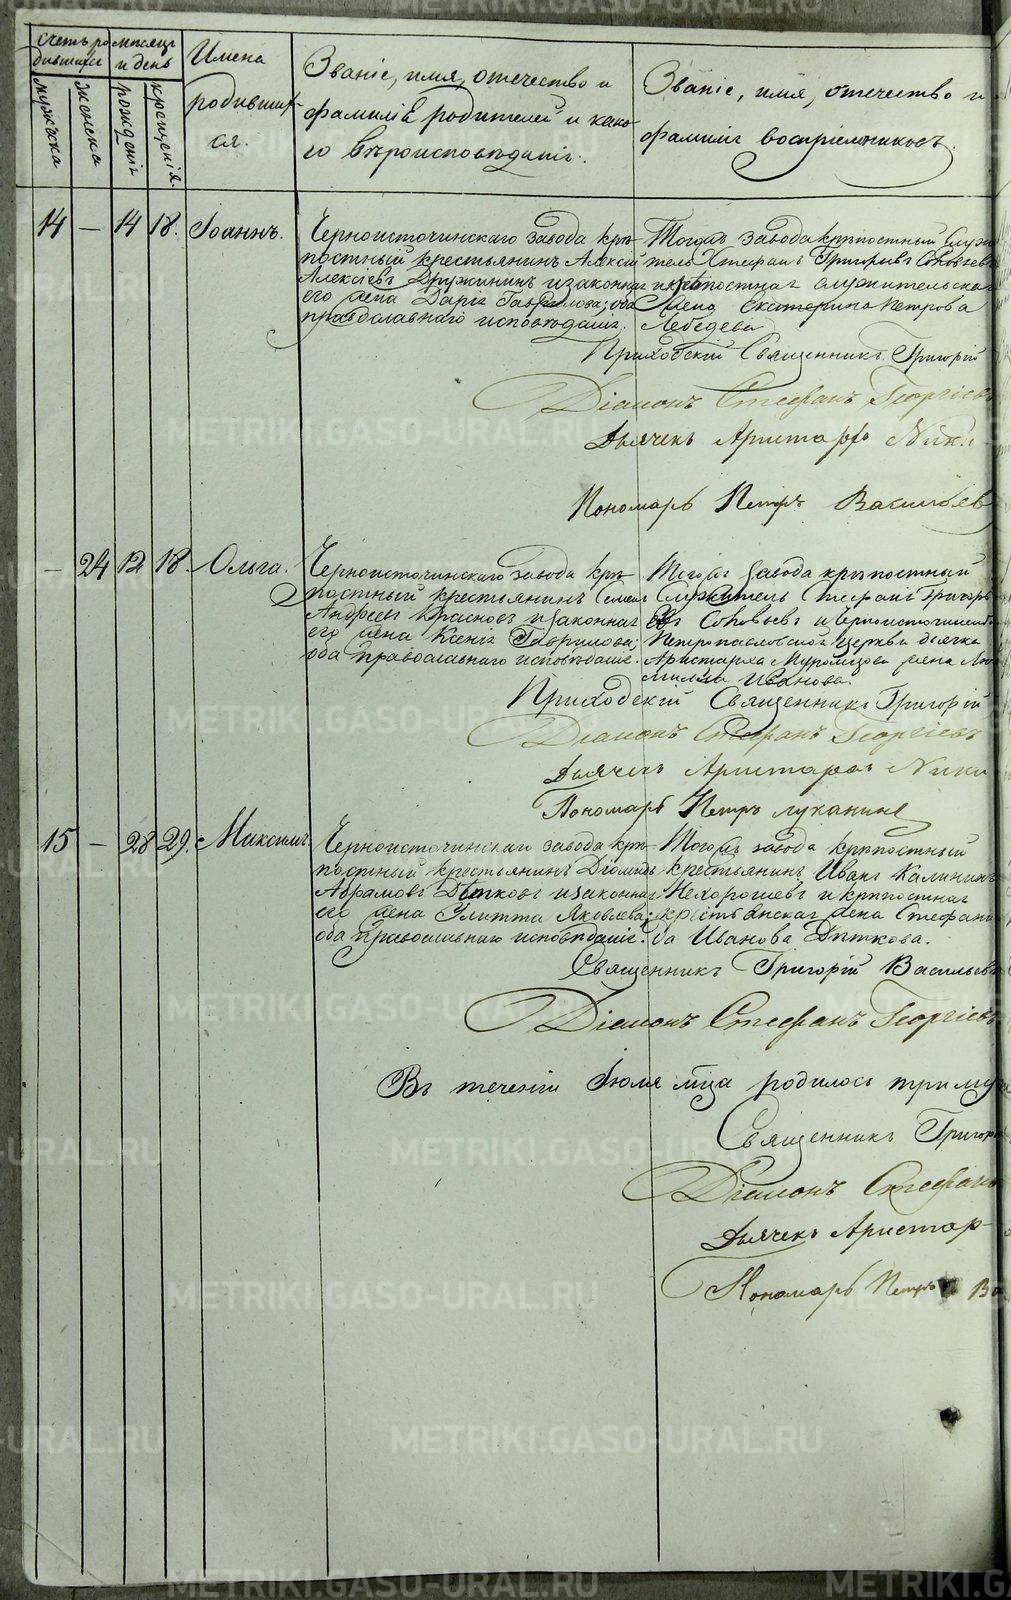 Счетъ ро
дившихся
мѣсяцъ
и день
мужеска
женска
рожденія
крещенія
Имена
родивших-
ся.
Званіе, имя, отечество и
фамилія родителей и како-
го вѣроисповѣданія.
Званіе, имя, отечество и
фамилія воспріемниковъ.
14 — 14 18. Іоаннъ.
Черноисточинскаго завода крѣ-
постный крестьянинъ Алексій
Алексіевъ Дружининъ и законная
его жена Дарія Гаврилова; оба
православнаго исповѣданія.
Тогожъ завода крѣпостный служи-
тель Стефанъ Григорьевъ Соловьевъ
и крѣпостная служительская
жена Екатерина Петрова
Лебедева
Приходскій Священникъ Григорій
Діаконъ Стефанъ Георгіевъ
Дьячекъ Аристархъ Мики-
Пономарь Петръ Васильевъ
— 24 12 18. Ольга.
Черноисточинскаго завода крѣ-
постный крестьянинъ Семенъ
Андреевъ Красновъ и законная
его жена Ксенія Гаврилова;
оба православнаго исповѣданія.
Тогожъ завода крѣпостный
Служитель Стефанъ Григорь-
евъ Соловьевъ и Черноисточинской
Петропавловской церкви дьячка
Аристарха Муромцова жена
Иванова.
Приходскій Священникъ Григорій
Діаконъ Стефанъ Георгіевъ
Дьячекъ Аристархъ Мики-
Пономарь Петръ Луканинъ
15 — 28 29. Максимъ
Черноисточинскаго завода крѣ-
постный крестьянинъ Діомидъ
Абрамовъ Дѣтковъ и законная
его жена Улитта Яковлева;
оба православнаго исповѣданія.
Тогожъ завода крѣпостный
крестьянинъ Иванъ Калининъ
Нехорошевъ и крѣпостная
крестьянская жена Стефани-
да Иванова Дѣткова.
Священникъ Григорій Васильевъ
Діаконъ Стефанъ Георгіевъ
Въ теченіи Іюля мца родилось три муж
Священникъ Григорій
Діаконъ Стефанъ
Дьячекъ Аристар-
Пономарь Петръ Ва
METRIKI.GASO-URAL.RU